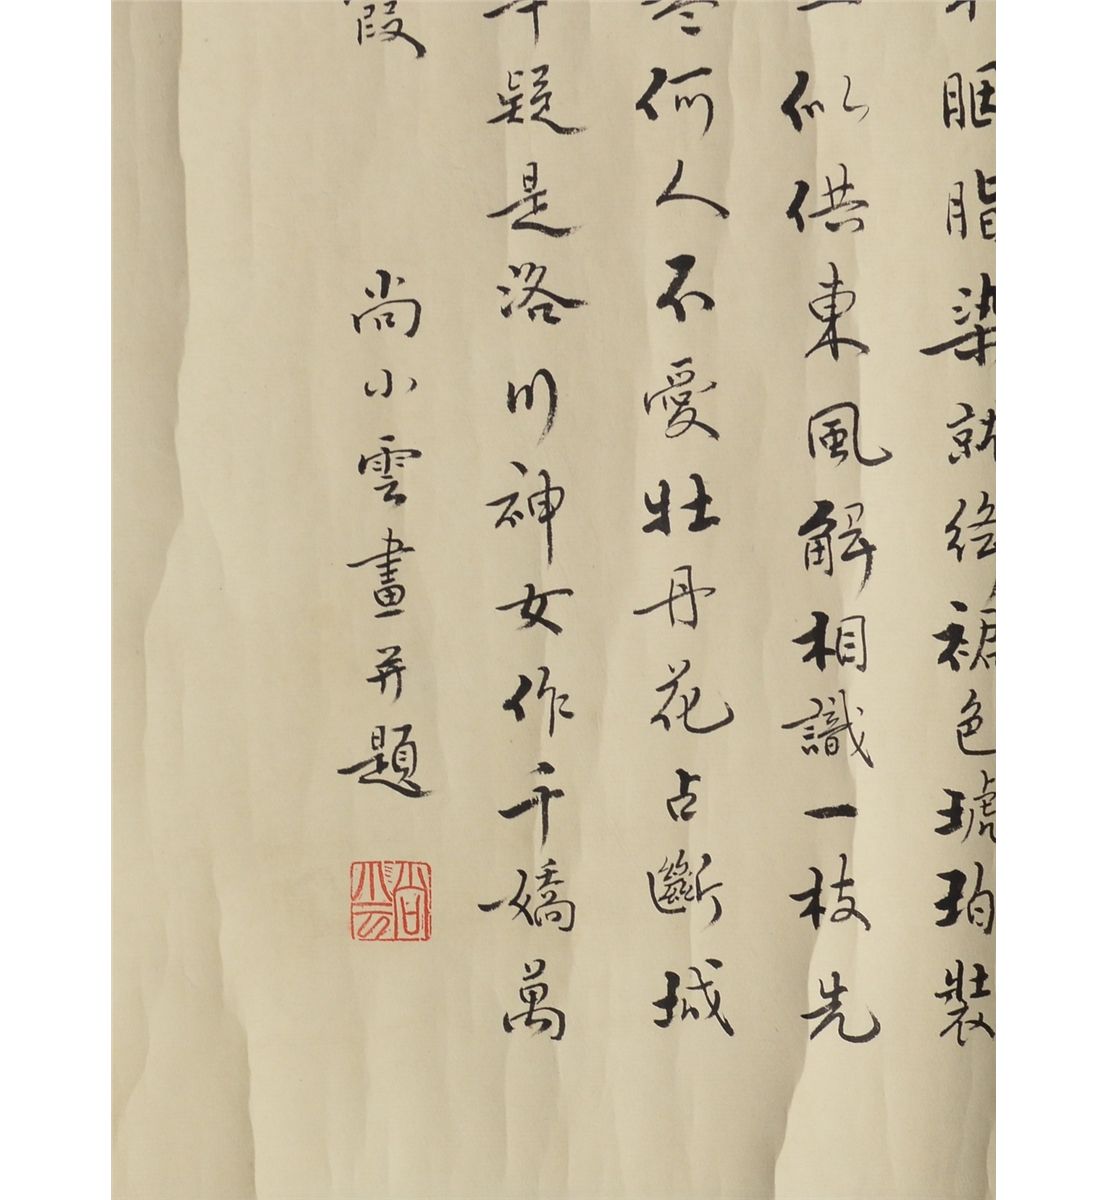 胭脂染就絳裙色琥珀裝
似供東風解相識一枝先
何人不愛牡丹花占斷城
疑是洛川神女作千嬌萬
霞
尚小雲畫并題
尚小雲